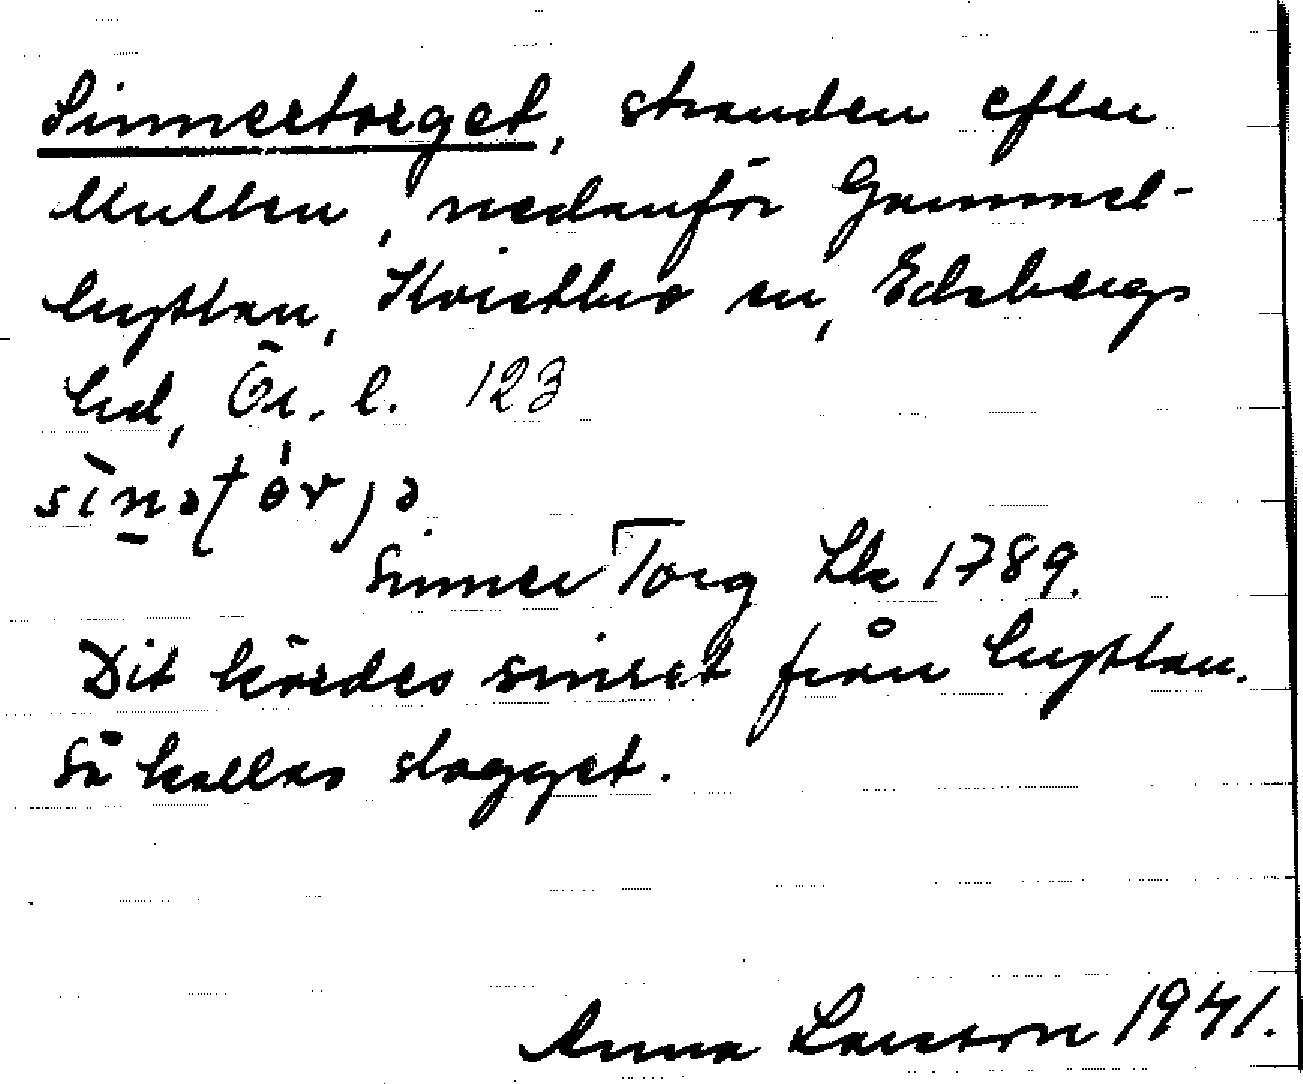 Sinnertorget, stranden efter
Mullen, nedanför Gammel-
hyttan, Kvistbro sn, Edsbergs
hd, Ör. l. 123
Sinner Torg Lk 1789.
Dit kördes sinret från hyttan.
Så kallas slagget.
Anna Larsson 1941.